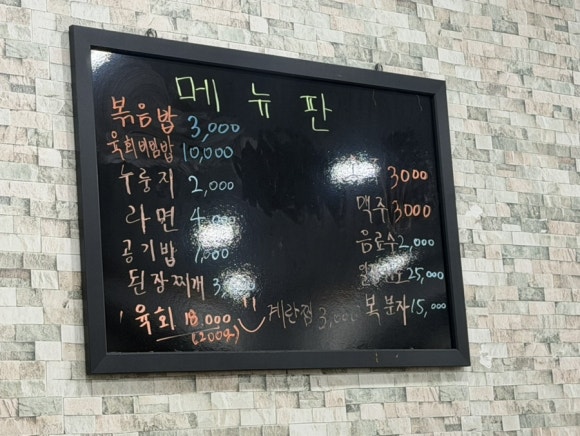 메뉴판
볶음밥 3,000
육회비빔밥 10,000
누룽지 2,000
라면 4,000
공기밥 1,000
된장찌개 3,000
육회 18,000
(200g)
계란찜 3,000
3000
맥주 3000
음료수 2,000
25,000
복분자 15,000